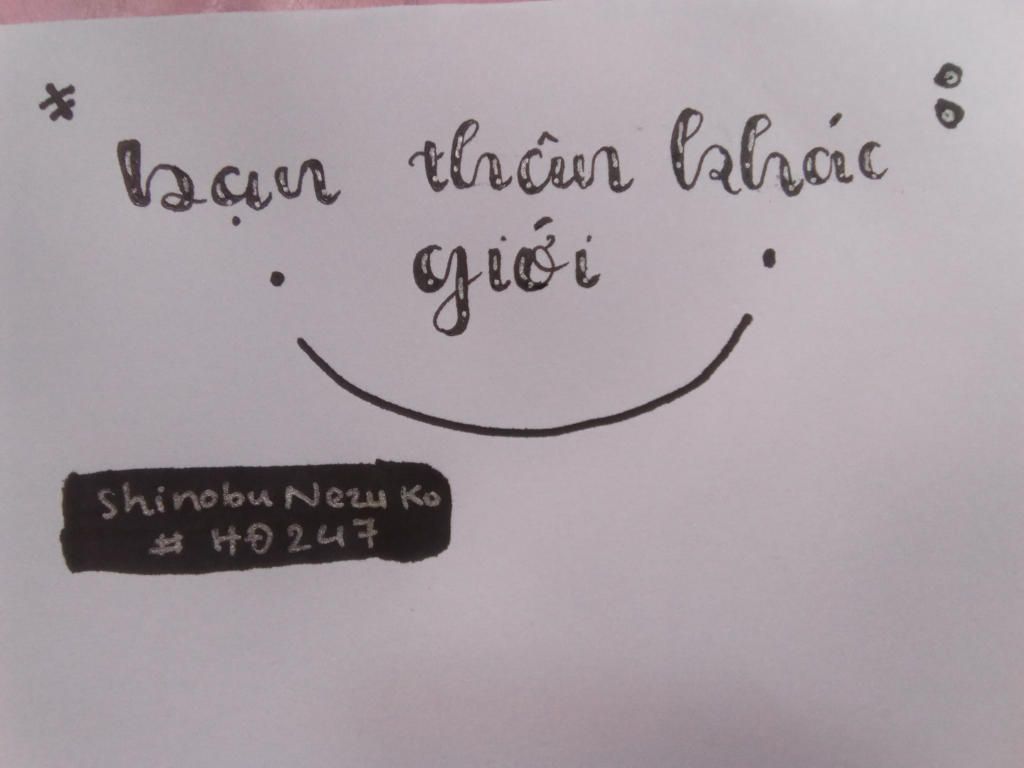 * bạn thân khác :
giới
Shinobu Nezu Ko
# HĐ247